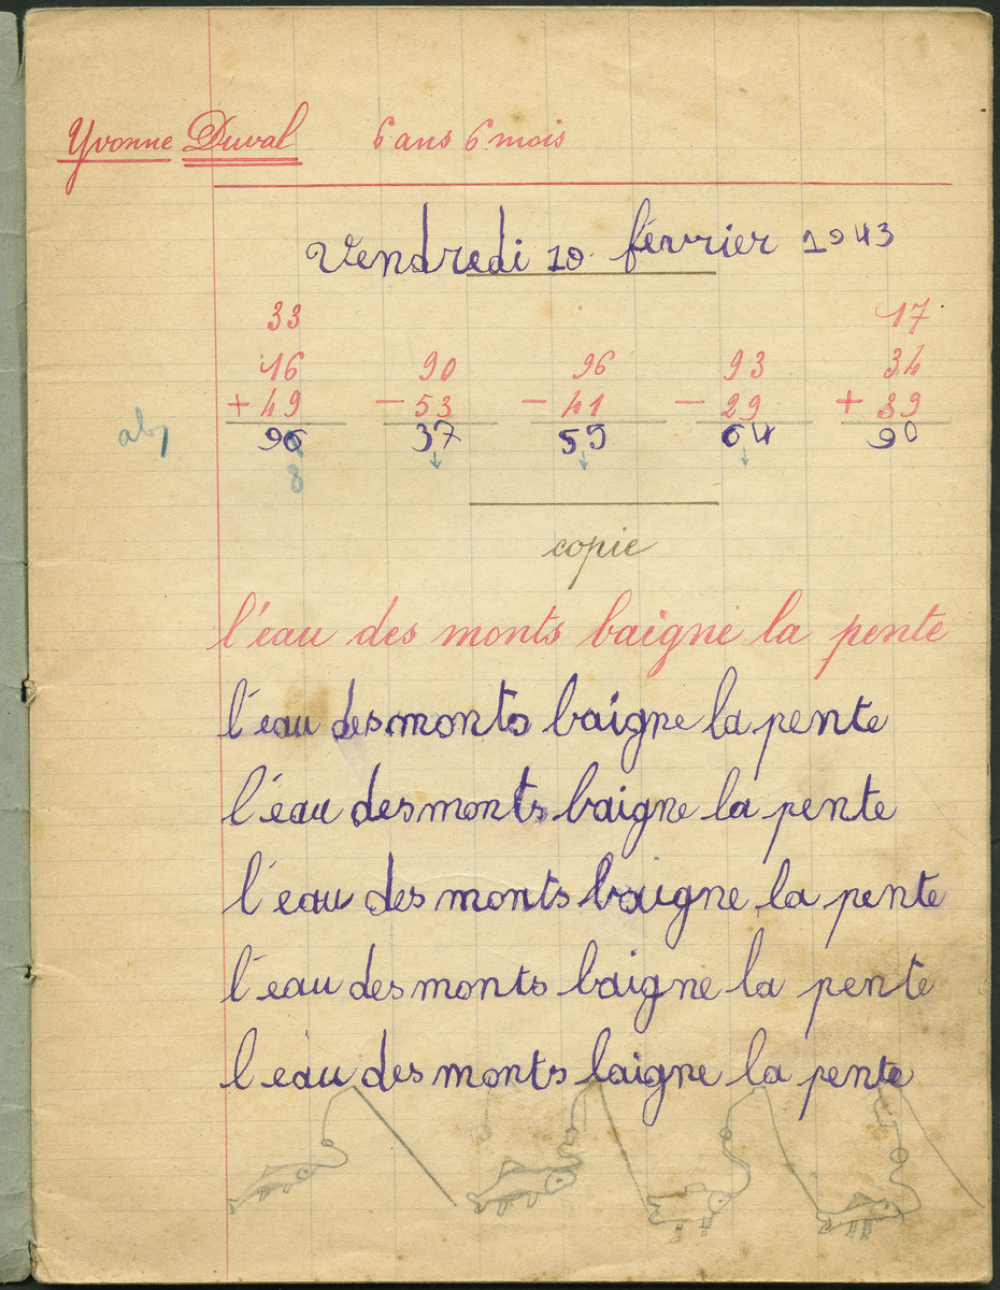 Yvonne Duval 6 ans 6 mois
Vendredi 19 février 1943
33 17
16 90 96 93 34
+ 49 - 53 - 41 - 29 + 39
96 37 55 64 90
8
copie
l'eau des monts baigne la pente
l'eau des monts baigne la pente
l'eau des monts baigne la pente
l'eau des monts baigne la pente
l'eau des monts baigne la pente
l'eau des monts baigne la pente